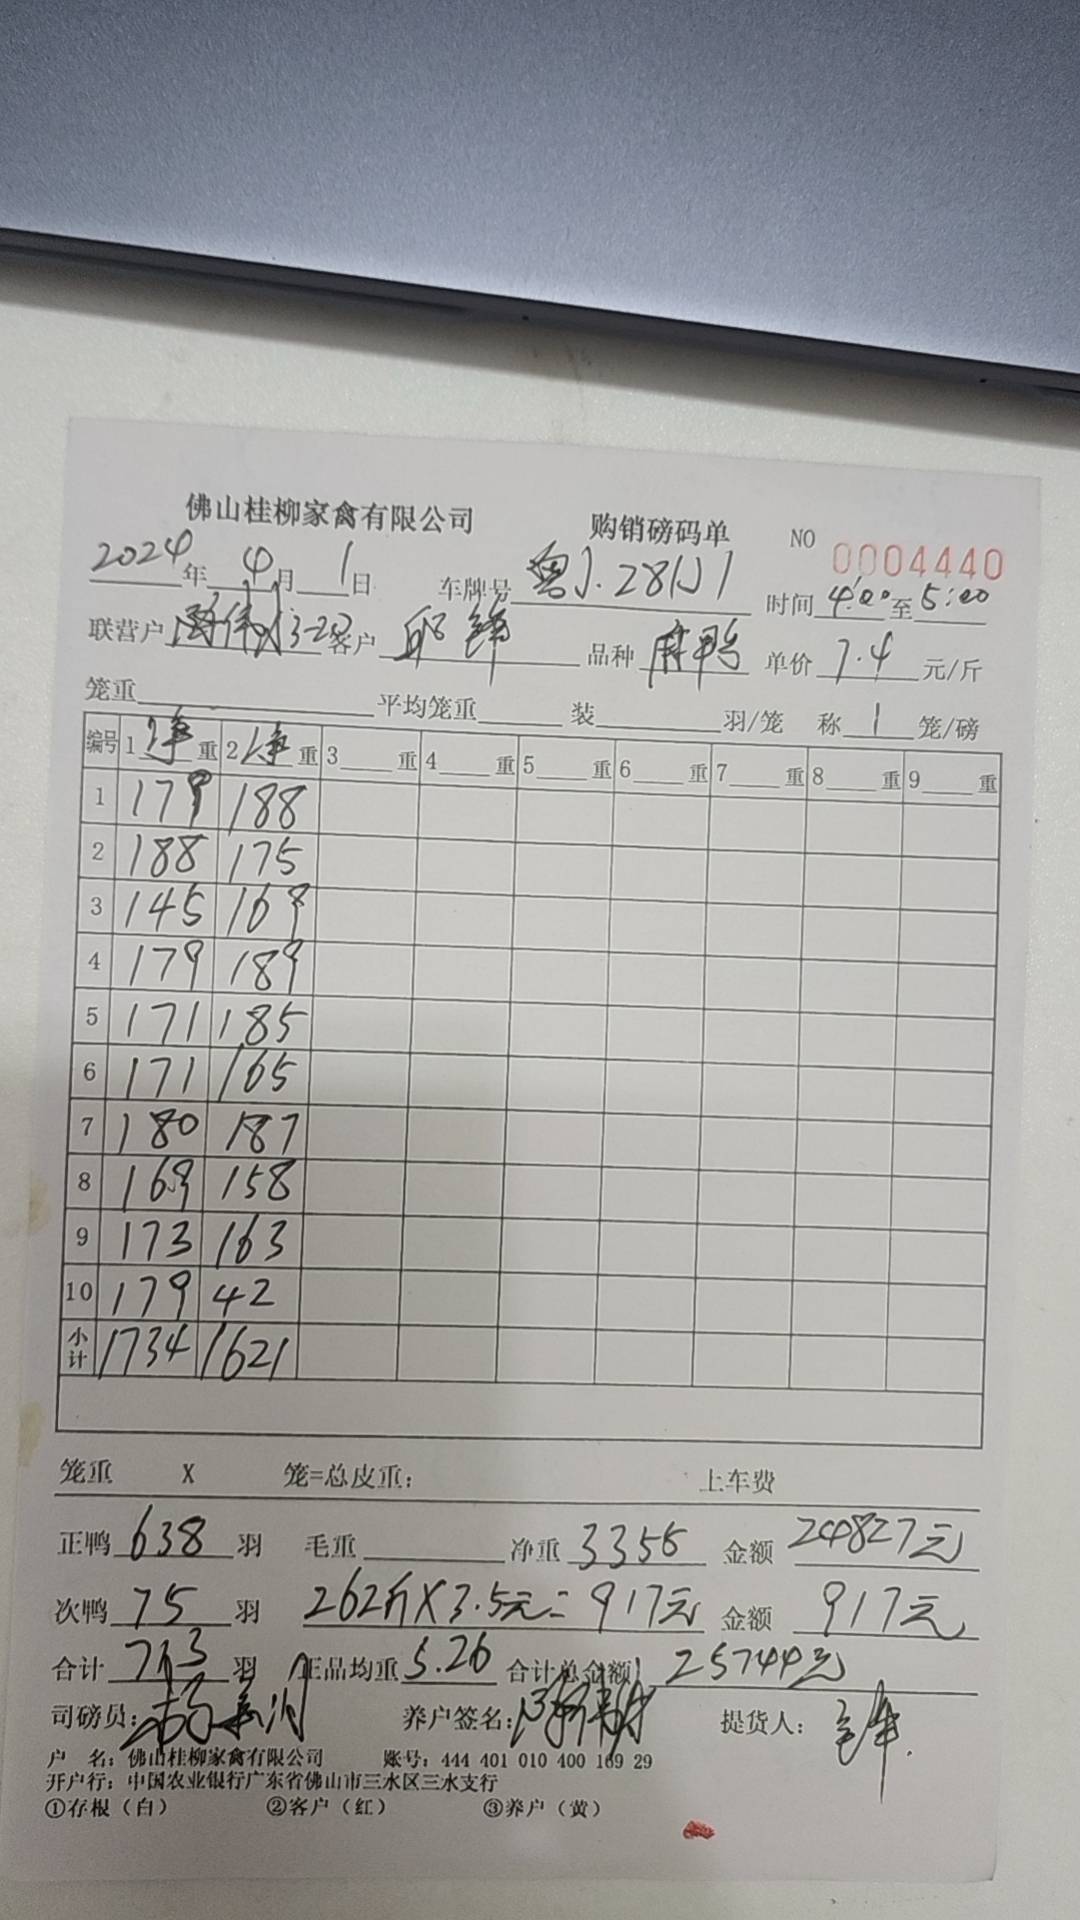 佛山桂柳家禽有限公司 购销磅码单 NO 0004440
2024年4月1日 车牌号 时间4:00至5:00
联营户 客户邱锋 品种麻鸭 单价7.4元/斤
笼重 平均笼重 装 羽/笼 称1笼/磅
编号 1净重 2净重 3 重 4 重 5 重 6 重 7 重 8 重 9 重
1 179 188
2 188 175
3 145 169
4 179 189
5 171 185
6 171 165
7 180 187
8 169 158
9 173 163
10 179 42
小计 1734 1621
笼重 X 笼=总皮重： 上车费
正鸭638羽 毛重 净重3355 金额24827元
次鸭75羽 262斤X3.5元=917元 金额917元
合计713羽 正品均重5.26 合计总金额25744元
司磅员： 养户签名： 提货人：
户 名：佛山桂柳家禽有限公司 账号：444 401 010 400 169 29
开户行：中国农业银行广东省佛山市三水区三水支行
①存根（白） ②客户（红） ③养户（黄）